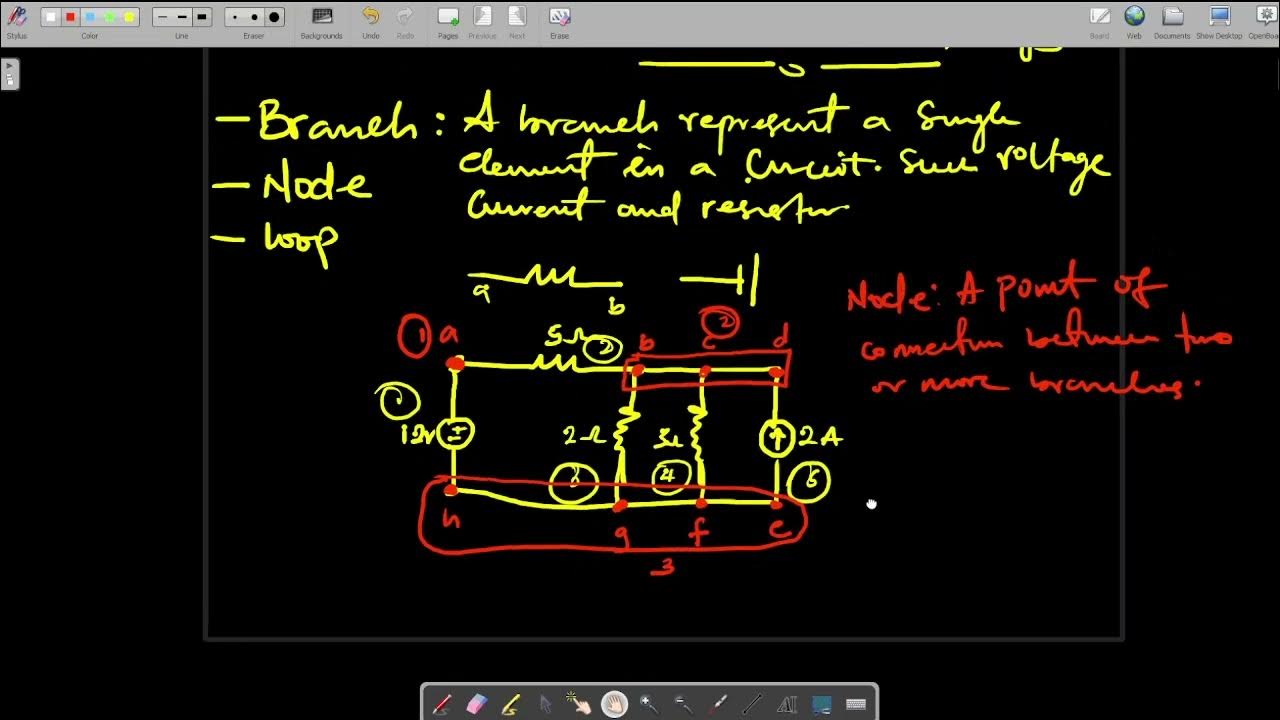 Stylus
Color
Line
Eraser
Backgrounds
Undo
Redo
Pages
Previous
Next
Erase
Board
Web
Documents
Show Desktop
OpenBoa
- Branch : A branch represent a single
element in a Circuit. Such voltage
Current and resistor
- Node
- loop
a
b
Node: A point of
connection between two
or more branches.
1 a
5Ω
2
b
c
2
d
1
12v
2Ω
3
4
2A
5
h
g
f
e
3